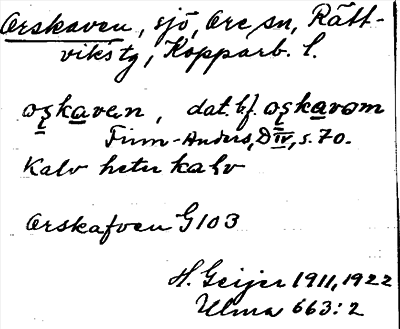 Orskaven, sjö, Ore sn, Rätt-
vikstg, Kopparb. l.
oşkavan, dat. bf. oşkavom
Finn-Anders, DIV, s. 70.
Kalv heter kalv
Orskafven G103
H. Geijer 1911, 1922
Ulma 663:2